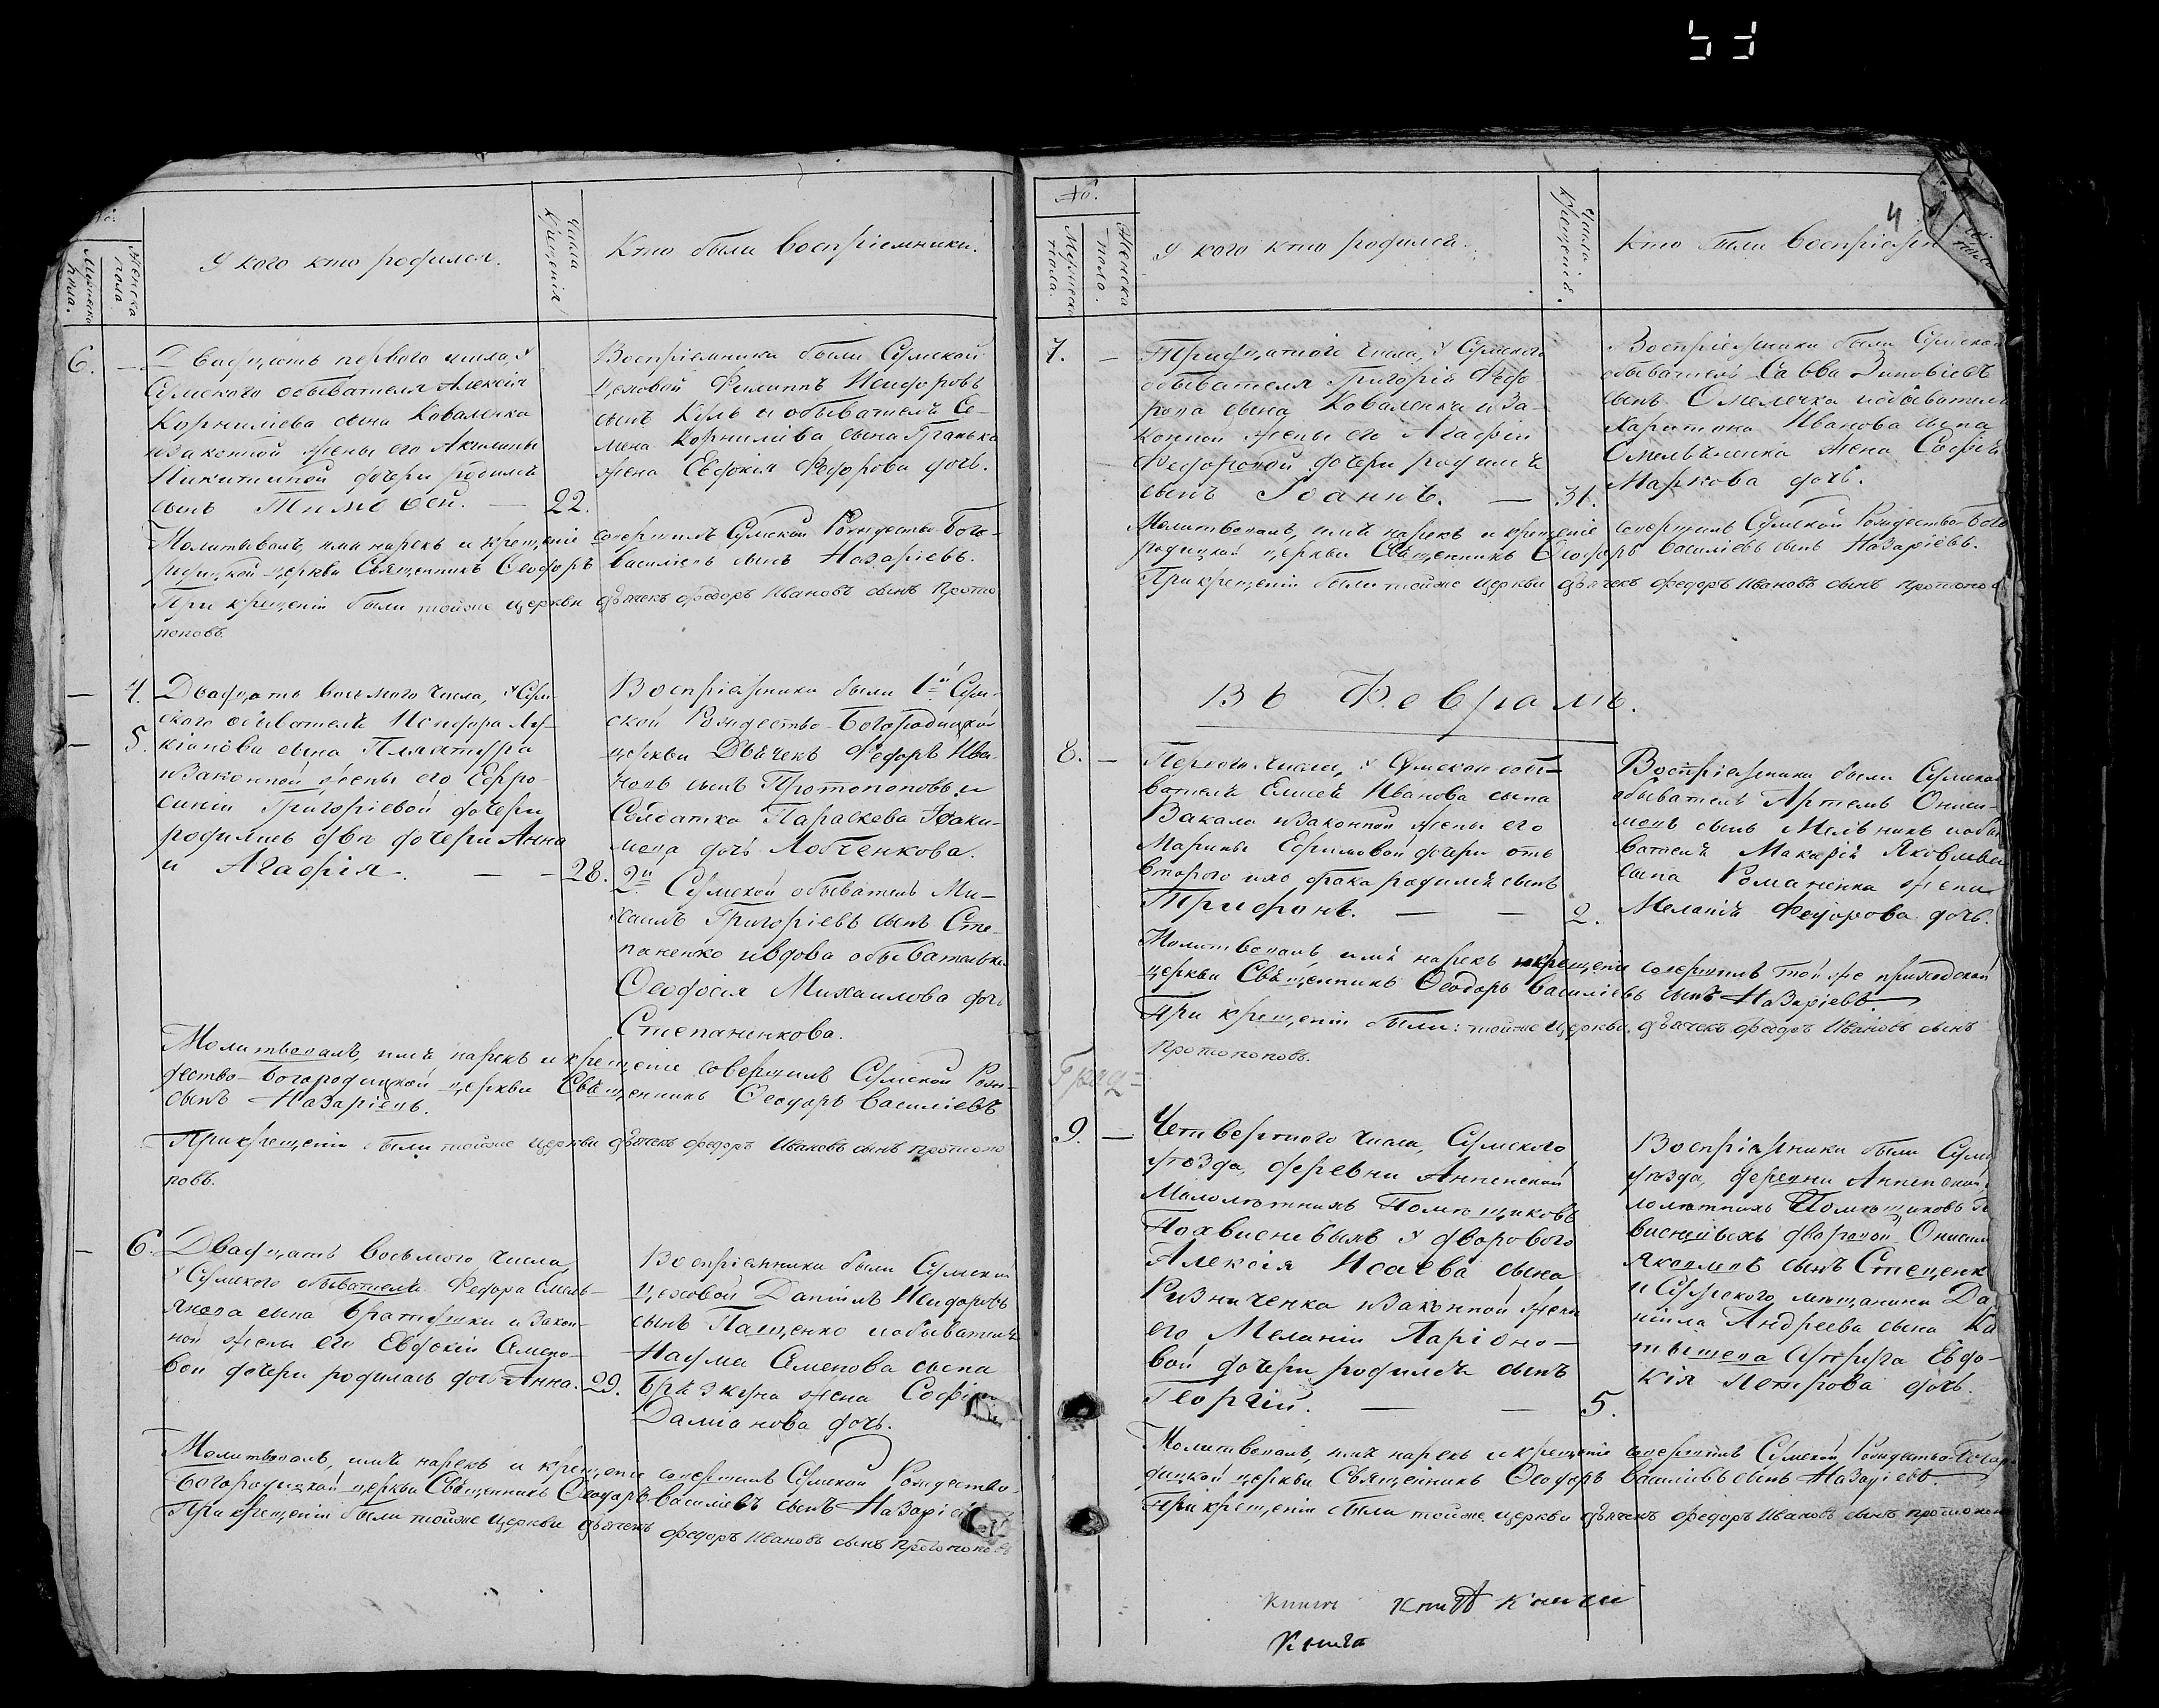 53
№.
Мужеска пола.
Женска пола
У кого кто родился.
Числа крещенія
Кто были воспріемники.
6. —
Двадцать перваго числа, у
Сумского обывателя Алексія
Корниліева сына Коваленка
и законной жены его Акилины
Никитиной дочери родился
сынъ Тимоѳей. — 22.
Воспріемники были Сумской
Цеховой Филиппъ Исидоровъ
сынъ Куль и обывателя Се-
мена Корниліева сына
жена Евдокія Федорова дочь.
Молитвовалъ, имя нарекъ и крещеніе совершилъ Сумской Рождество-Бого-
родицкой церкви Священникъ Ѳеодоръ Василіевъ сынъ Назаріевъ.
При крещеніи были тойже церкви дьячекъ Федоръ Ивановъ сынъ Прото
поповъ.
— 4.
— 5.
Двадцать восьмого числа, у Сум-
ского обывателя Исидора Лу-
кіанова сына
и законной жены его Евфро-
синіи Григоріевой дочери
родились двѣ дочери Анна
и Агафія. — — 28.
Воспріемники были 1й Сум-
ской Рождество-Богородицкой
церкви Дьячекъ Федоръ Ива-
новъ сынъ Протопоповъ, и
Солдатка Параскева Іоаки-
мова дочь Лобченкова.
2й Сумской обыватель Ми-
хаилъ Григоріевъ сынъ Сте-
паненко и вдова обывателька
Ѳеодосія Михаилова дочь
Степаненкова.
Молитвовалъ, имя нарекъ и крещеніе совершилъ Сумской Рож-
дество-Богородицкой церкви Священникъ Ѳеодоръ Василіевъ
сынъ Назаріевъ.
При крещеніи были тойже церкви дьячекъ Федоръ Ивановъ сынъ протопо
повъ.
— 6.
Двадцать восьмого числа,
у Сумского обывателя Федора Емель-
янова сына Братушки и закон-
ной жены его Евдокіи Семено-
вой дочери родилась дочь Анна. 29.
Воспріемники были Сумской
Цеховой Даніилъ Исидоровъ
сынъ Пащенко и обывателя
Наума Семенова сына
жена Софія
Даміанова дочь.
Молитвовалъ, имя нарекъ и крещеніе совершилъ Сумской Рождество-
Богородицкой церкви Священникъ Ѳеодоръ Василіевъ сынъ Назаріевъ
При крещеніи были тойже церкви дьячекъ Федоръ Ивановъ сынъ Протопоповъ
4
№.
Мужеска пола.
Женска пола.
У кого кто родился.
Числа крещенія.
Кто были воспріемн
7. —
Тридцатого числа, у Сумского
обывателя Григорія Федо-
рова сына Коваленка и за-
конной жены его Агафіи
Федоровой дочери родился
сынъ Іоаннъ. — 31.
Воспріемники были Сумской
обыватель Савва Зиновіевъ
сынъ Омелечка и обывателя
Харитона Иванова сына
Омельченка жена Софія
Маркова дочь.
Молитвовалъ, имя нарекъ и крещеніе совершилъ Сумской Рождество-Бого
родицкой церкви Священникъ Ѳеодоръ Василіевъ сынъ Назаріевъ.
При крещеніи были тойже церкви дьячекъ Федоръ Ивановъ сынъ протопопо
Въ Февралѣ.
8. —
Перваго числа, у Сумского обы-
вателя Елисея Иванова сына
Вакала и законной жены его
Марины Ефимовой дочери отъ
второго ихъ брака родился сынъ
Трифонъ. — — 2.
Воспріемники были Сумской
обыватель Артемъ Ониси-
мовъ сынъ Мельникъ и обы
вателя Макарія Яковлева
сына Романенка жена
Меланія Федорова дочь.
Молитвовалъ, имя нарекъ и крещеніе совершилъ той же приходской
церкви Священникъ Ѳеодоръ Василіевъ сынъ Назаріевъ
При крещеніи были: тойже церкви дьячекъ Федоръ Ивановъ сынъ
Протопоповъ.
9. —
Четвертого числа, Сумского
уѣзда, деревни Анненской
Малолѣтнихъ Помѣщиковъ
Похвисневыхъ у дворового
Алексія Исаева сына
Ризниченка и законной жены
его Меланіи Ларіоно-
вой дочери родился сынъ
Георгій. — — 5.
Воспріемники были Сумс
уѣзда, деревни Анненской
лолѣтнихъ Помѣщиковъ П
висневыхъ дворовой Онисим
Яковлевъ сынъ Стеценк
и Сумского мѣщанина Да
ніила Андреева сына Ка
супруга Евдо-
кія Петрова дочь.
Молитвовалъ, имя нарекъ и крещеніе совершилъ Сумской Рождество-Богоро
дицкой церкви Священникъ Ѳеодоръ Василіевъ сынъ Назаріевъ
При крещеніи были тойже церкви дьячекъ Федоръ Ивановъ сынъ протопопов
книги
Книга